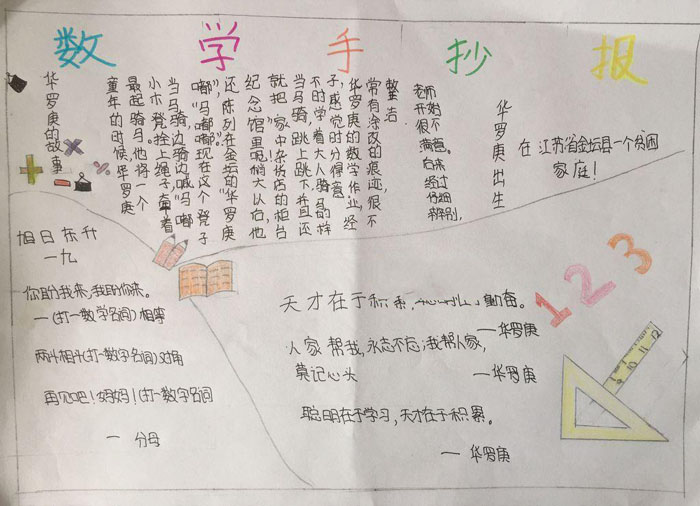 数学手抄报
华罗庚的故事
童年的时候华罗庚
最起骑马.他将一个
小木凳拴上绳子,牵着
当马骑,边骑边喊“马嘟
嘟”,“马嘟嘟现在这个凳子
还陈列在金坛的“华罗庚
纪念馆里呢!稍大以后,他
就把家中杂货店的柜台
当马骑,跳上跳下,并且还
不时学着大人骑马的样
子,感觉时分得意
华罗庚的数学作业,经
常有涂改的痕迹,很不
整洁.
老师
开始
很不
满意。
后来
经过
仔细
辨别,
华罗庚出生
在江苏省金坛县一个贫困
家庭!
旭日东升
一九
你盼我来,我盼你来。
—(打一数学名词)相等
两牛相斗(打一数学名词)对角
再见吧!妈妈!(打一数学名词
— 分母
123
天才在于积 勤奋。
—华罗庚
人家帮我,永志不忘;我帮人家,
莫记心头
—华罗庚
聪明在于学习,天才在于积累。
— 华罗庚
9 10 11 12